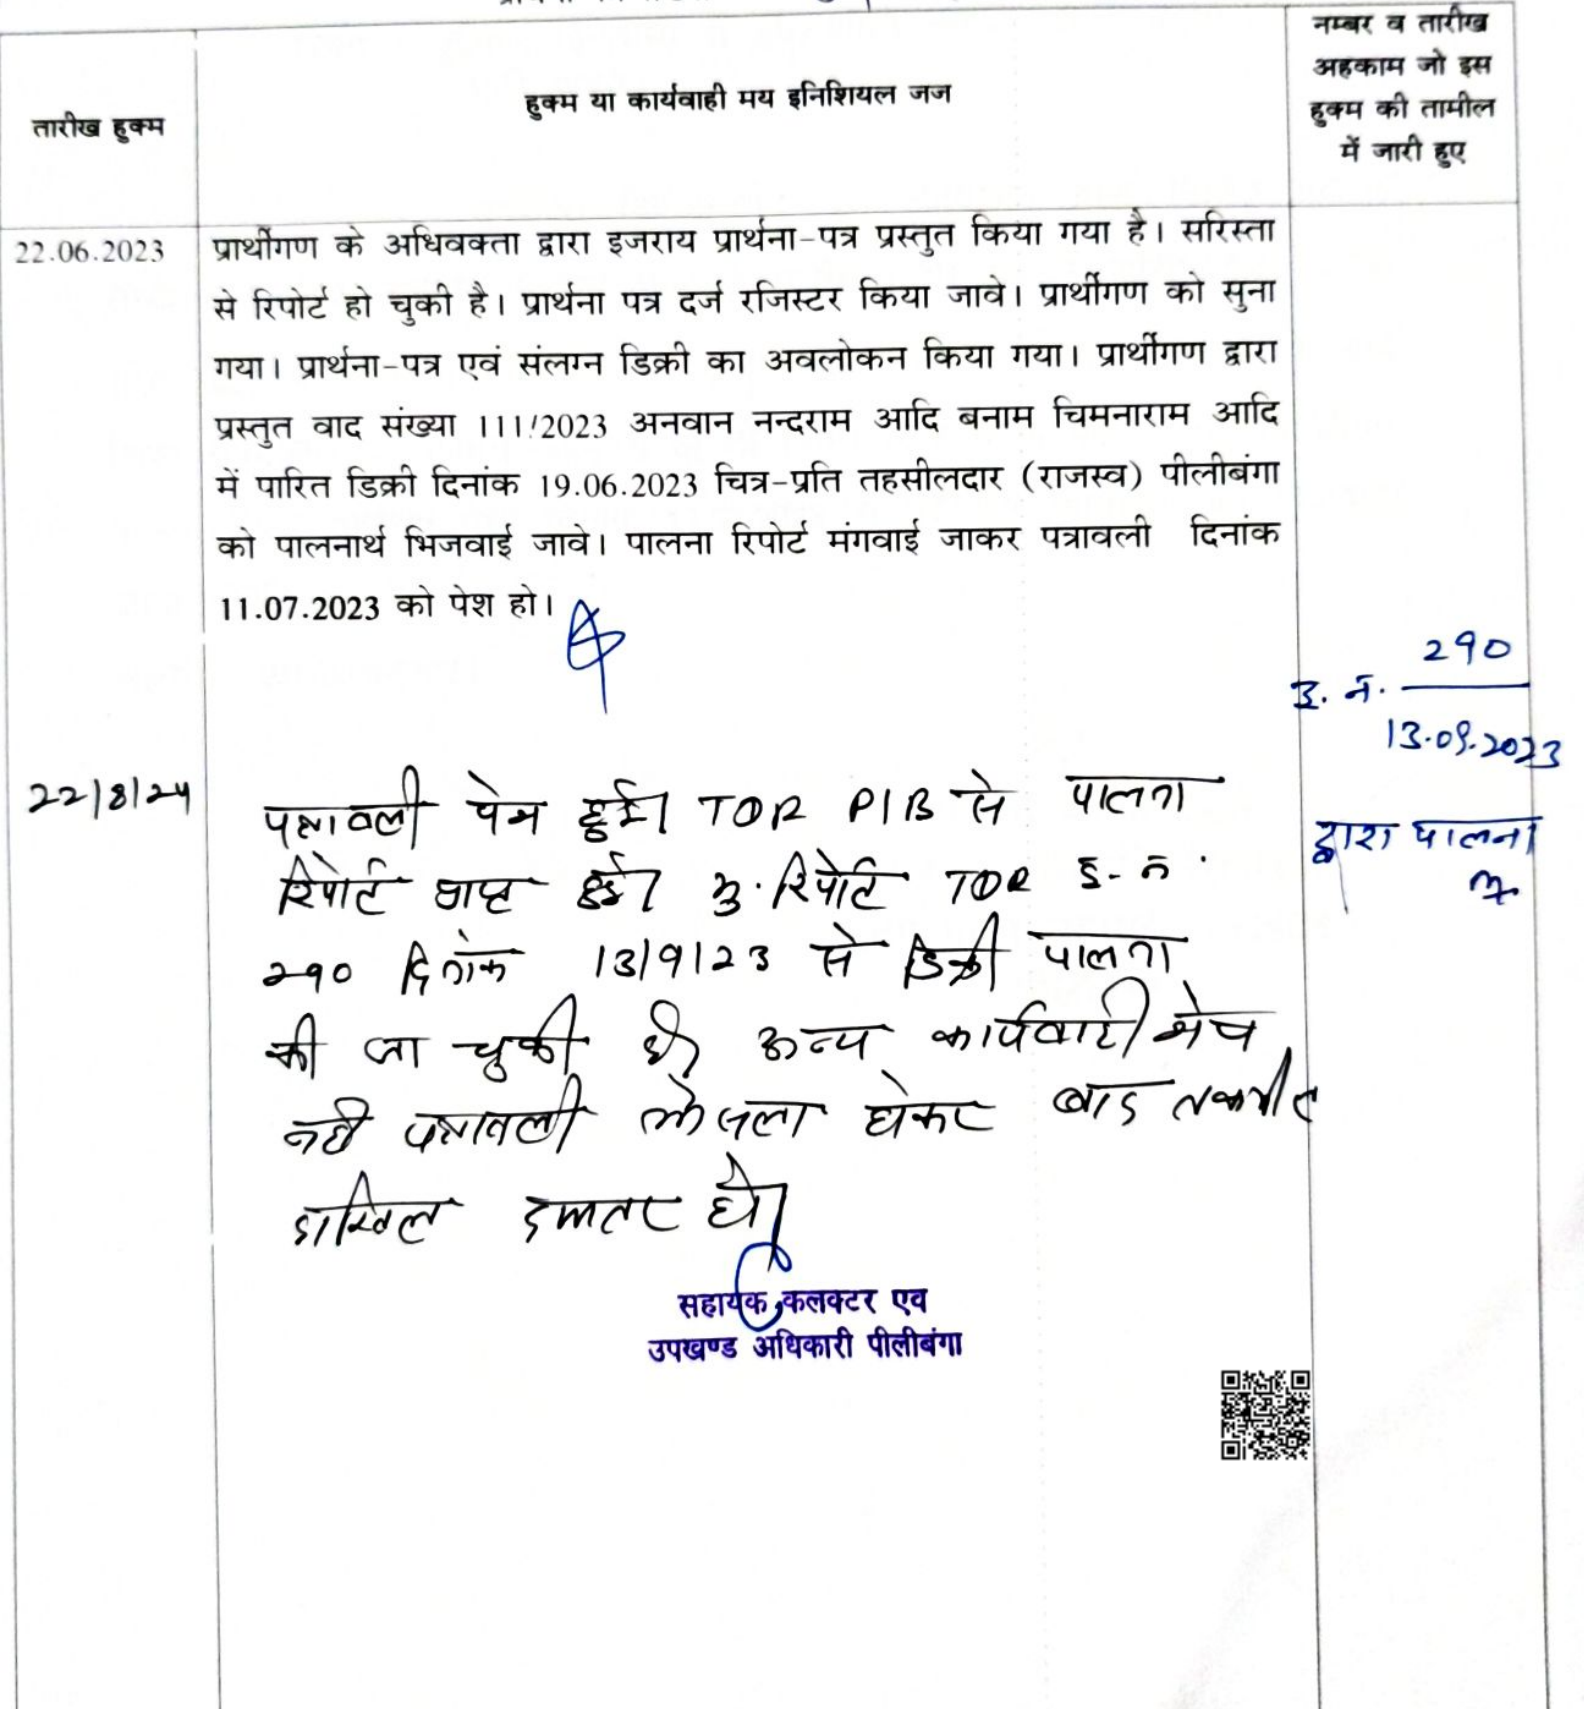 तारीख हुक्म
हुक्म या कार्यवाही मय इनिशियल जज
नम्बर व तारीख
अहकाम जो इस
हुक्म की तामील
में जारी हुए
22.06.2023
प्रार्थीगण के अधिवक्ता द्वारा इजराय प्रार्थना-पत्र प्रस्तुत किया गया है। सरिस्ता
से रिपोर्ट हो चुकी है। प्रार्थना पत्र दर्ज रजिस्टर किया जावे। प्रार्थीगण को सुना
गया। प्रार्थना-पत्र एवं संलग्न डिक्री का अवलोकन किया गया। प्रार्थीगण द्वारा
प्रस्तुत वाद संख्या 111/2023 अनवान नन्दराम आदि बनाम चिमनाराम आदि
में पारित डिक्री दिनांक 19.06.2023 चित्र-प्रति तहसीलदार (राजस्व) पीलीबंगा
को पालनार्थ भिजवाई जावे। पालना रिपोर्ट मंगवाई जाकर पत्रावली दिनांक
11.07.2023 को पेश हो।
290
इ. नं.
13.09.2023
द्वारा पालना
22/8/24
पत्रावली पेश हुई। TOR PIB से पालना
रिपोर्ट प्राप्त हुई। मु. रिपोर्ट TOR इ. नं.
290 दिनांक 13/9/23 से डिक्री पालना
की जा चुकी है। अन्य कार्यवाही शेष
नहीं पत्रावली फैसला होकर बाद तकमील
दाखिल दफ्तर हो।
सहायक कलक्टर एव
उपखण्ड अधिकारी पीलीबंगा